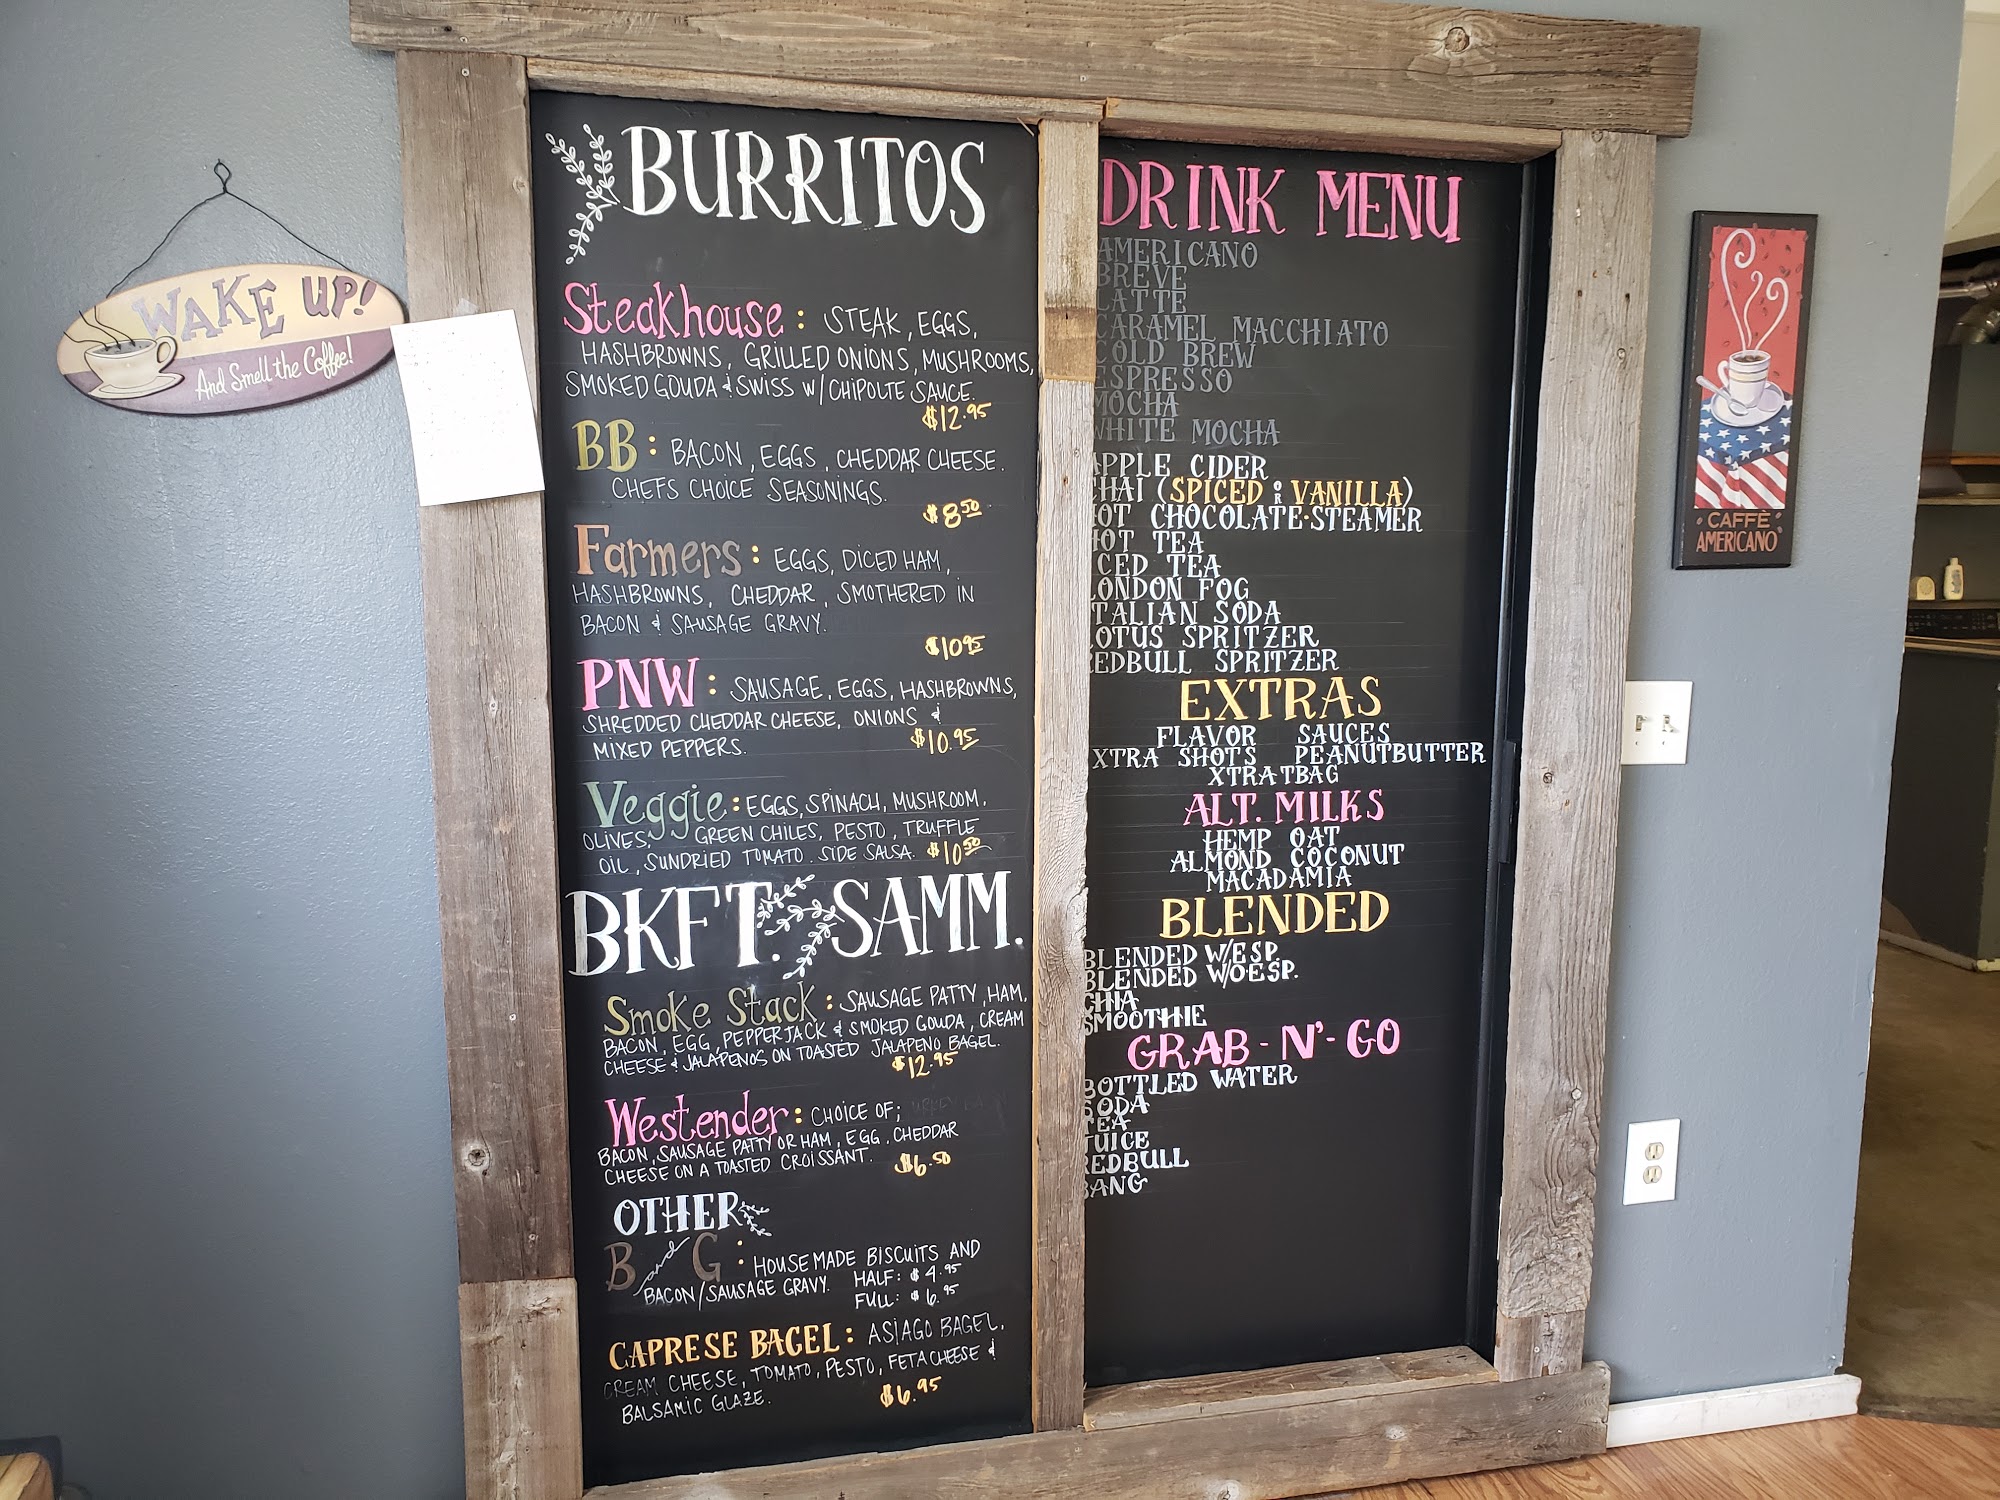 WAKE UP!
And Smell the Coffee!
BURRITOS
Steakhouse: STEAK, EGGS,
HASHBROWNS, GRILLED ONIONS, MUSHROOMS,
SMOKED GOUDA & SWISS W/ CHIPOLTE SAUCE.
$12.95
BB: BACON, EGGS, CHEDDAR CHEESE.
CHEFS CHOICE SEASONINGS.
$8.50
Farmers: EGGS, DICED HAM,
HASHBROWNS, CHEDDAR, SMOTHERED IN
BACON & SAUSAGE GRAVY.
$10.95
PNW: SAUSAGE, EGGS, HASHBROWNS,
SHREDDED CHEDDAR CHEESE, ONIONS &
MIXED PEPPERS. $10.95
Veggie: EGGS, SPINACH, MUSHROOM,
OLIVES, GREEN CHILES, PESTO, TRUFFLE
OIL, SUNDRIED TOMATO. SIDE SALSA. $10.50
BKFT. SAMM.
Smoke Stack: SAUSAGE PATTY, HAM,
BACON, EGG, PEPPERJACK & SMOKED GOUDA, CREAM
CHEESE & JALAPENOS ON TOASTED JALAPENO BAGEL.
$12.95
Westender: CHOICE OF;
BACON, SAUSAGE PATTY OR HAM, EGG, CHEDDAR
CHEESE ON A TOASTED CROISSANT. $6.50
OTHER
B and G: HOUSEMADE BISCUITS AND
BACON/SAUSAGE GRAVY. HALF: $4.95
FULL: $6.95
CAPRESE BAGEL: ASIAGO BAGEL,
CREAM CHEESE, TOMATO, PESTO, FETA CHEESE &
BALSAMIC GLAZE. $6.95
DRINK MENU
AMERICANO
BREVE
LATTE
CARAMEL MACCHIATO
COLD BREW
ESPRESSO
MOCHA
WHITE MOCHA
APPLE CIDER
CHAI (SPICED OR VANILLA)
HOT CHOCOLATE·STEAMER
HOT TEA
ICED TEA
LONDON FOG
ITALIAN SODA
LOTUS SPRITZER
REDBULL SPRITZER
EXTRAS
FLAVOR SAUCES
XTRA SHOTS PEANUTBUTTER
XTRA TBAG
ALT. MILKS
HEMP OAT
ALMOND COCONUT
MACADAMIA
BLENDED
BLENDED W/ESP.
BLENDED W/OESP.
CHIA
SMOOTHIE
GRAB-N'-GO
BOTTLED WATER
SODA
TEA
JUICE
REDBULL
BANG
CAFFÈ
AMERICANO